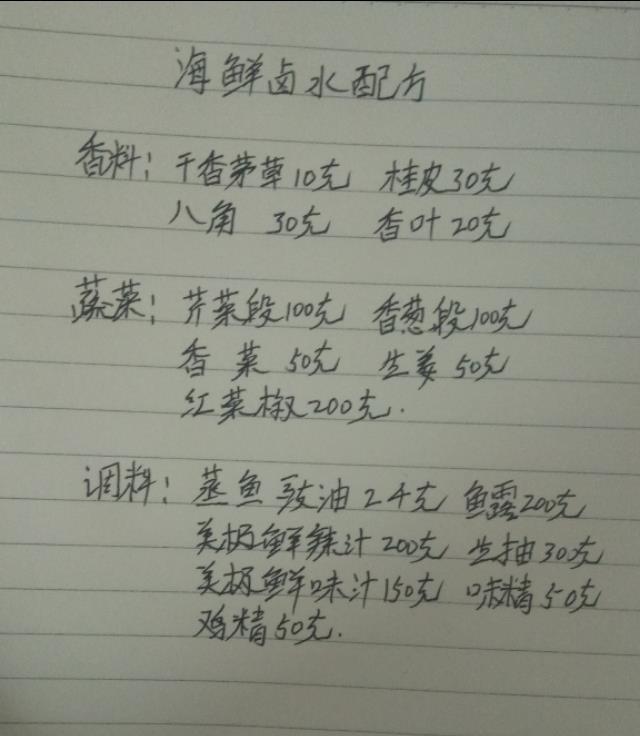 海鲜卤水配方
香料: 干香茅草10克 桂皮30克
八角 30克 香叶20克
蔬菜: 芹菜段100克 香葱段100克
香菜 50克 生姜 50克
红菜椒200克.
调料: 蒸鱼豉油2千克 鱼露200克
美极鲜辣汁200克 生抽300克
美极鲜味汁150克 味精50克
鸡精50克.